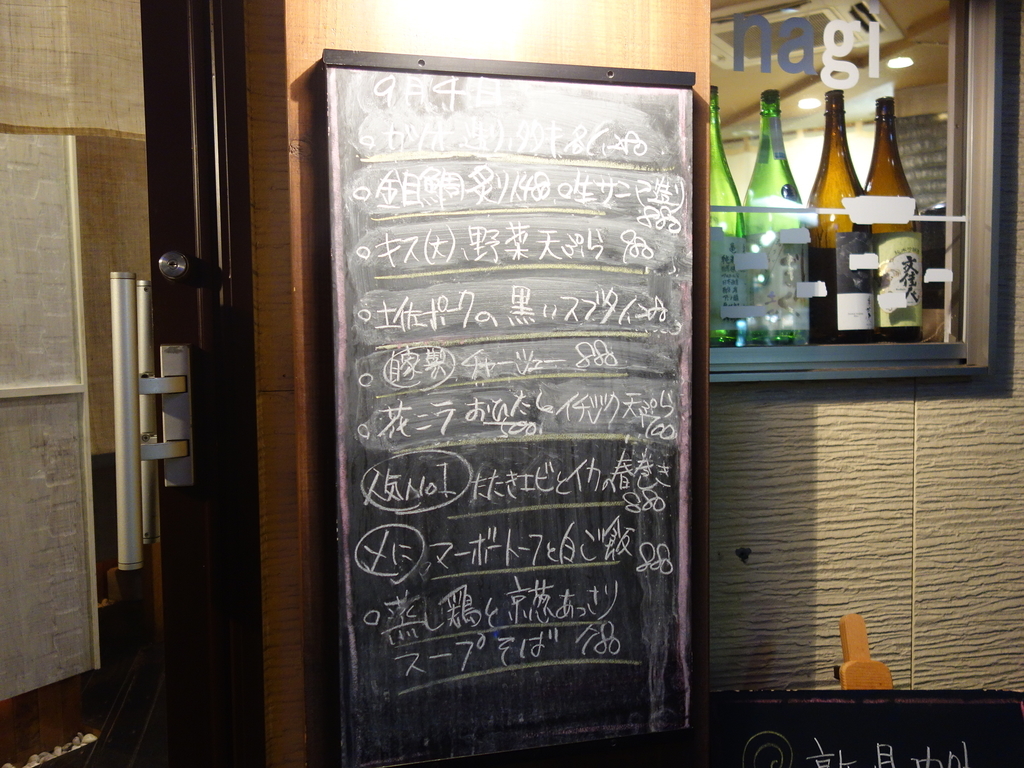 9月4日
カツオ造り
金目鯛炙り1480 生サンマ造り
880
キス(大)野菜天ぷら 980
土佐ポークの黒いスブタ
自家製 チャーシュー 880
花ニラおひたし イチジク天ぷら
500
人気No1 たたきエビとイカの春巻き
880
〆に マーボートーフと白ご飯
880
蒸し鶏と京葱あっさり
スープそば 980
nagi